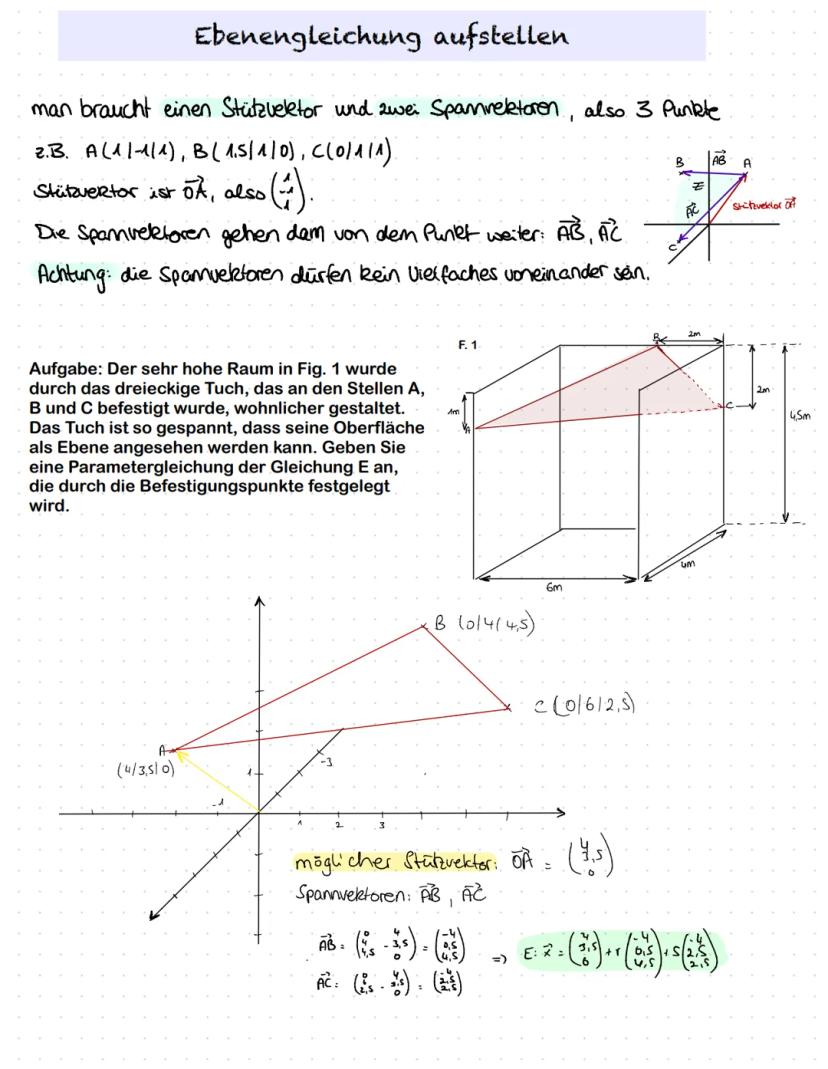 Ebenengleichung aufstellen
man braucht einen Stützvektor und zwei Spannvektoren, also 3 Punkte
z.B. A(1|-1|1), B(1,5|1|0), C(0|1|1)
Stützvektor ist OA, also (1 -1 1).
Die Spannvektoren gehen dann von dem Punkt weiter: AB, AC
Achtung: die Spannvektoren dürfen kein Vielfaches voneinander sein.
B AB A
E
AC Stützvektor OA
C
F. 1
Aufgabe: Der sehr hohe Raum in Fig. 1 wurde
durch das dreieckige Tuch, das an den Stellen A,
B und C befestigt wurde, wohnlicher gestaltet.
Das Tuch ist so gespannt, dass seine Oberfläche
als Ebene angesehen werden kann. Geben Sie
eine Parametergleichung der Gleichung E an,
die durch die Befestigungspunkte festgelegt
wird.
B 2m
2m
1m
A
C
4,5m
4m
6m
B (0|4|4,5)
C (0|6|2,5)
A
(4|3,5|0)
-3
1
-1
1 2 3
möglicher Stützvektor: OA = (4 3,5 0)
Spannvektoren: AB, AC
AB = (0 4 4,5 - 4 3,5 0) = (-4 0,5 4,5)
=> E: x = (4 3,5 0) + r (-4 0,5 4,5) + s (-4 2,5 2,5)
AC = (0 6 2,5 - 4 3,5 0) = (-4 2,5 2,5)